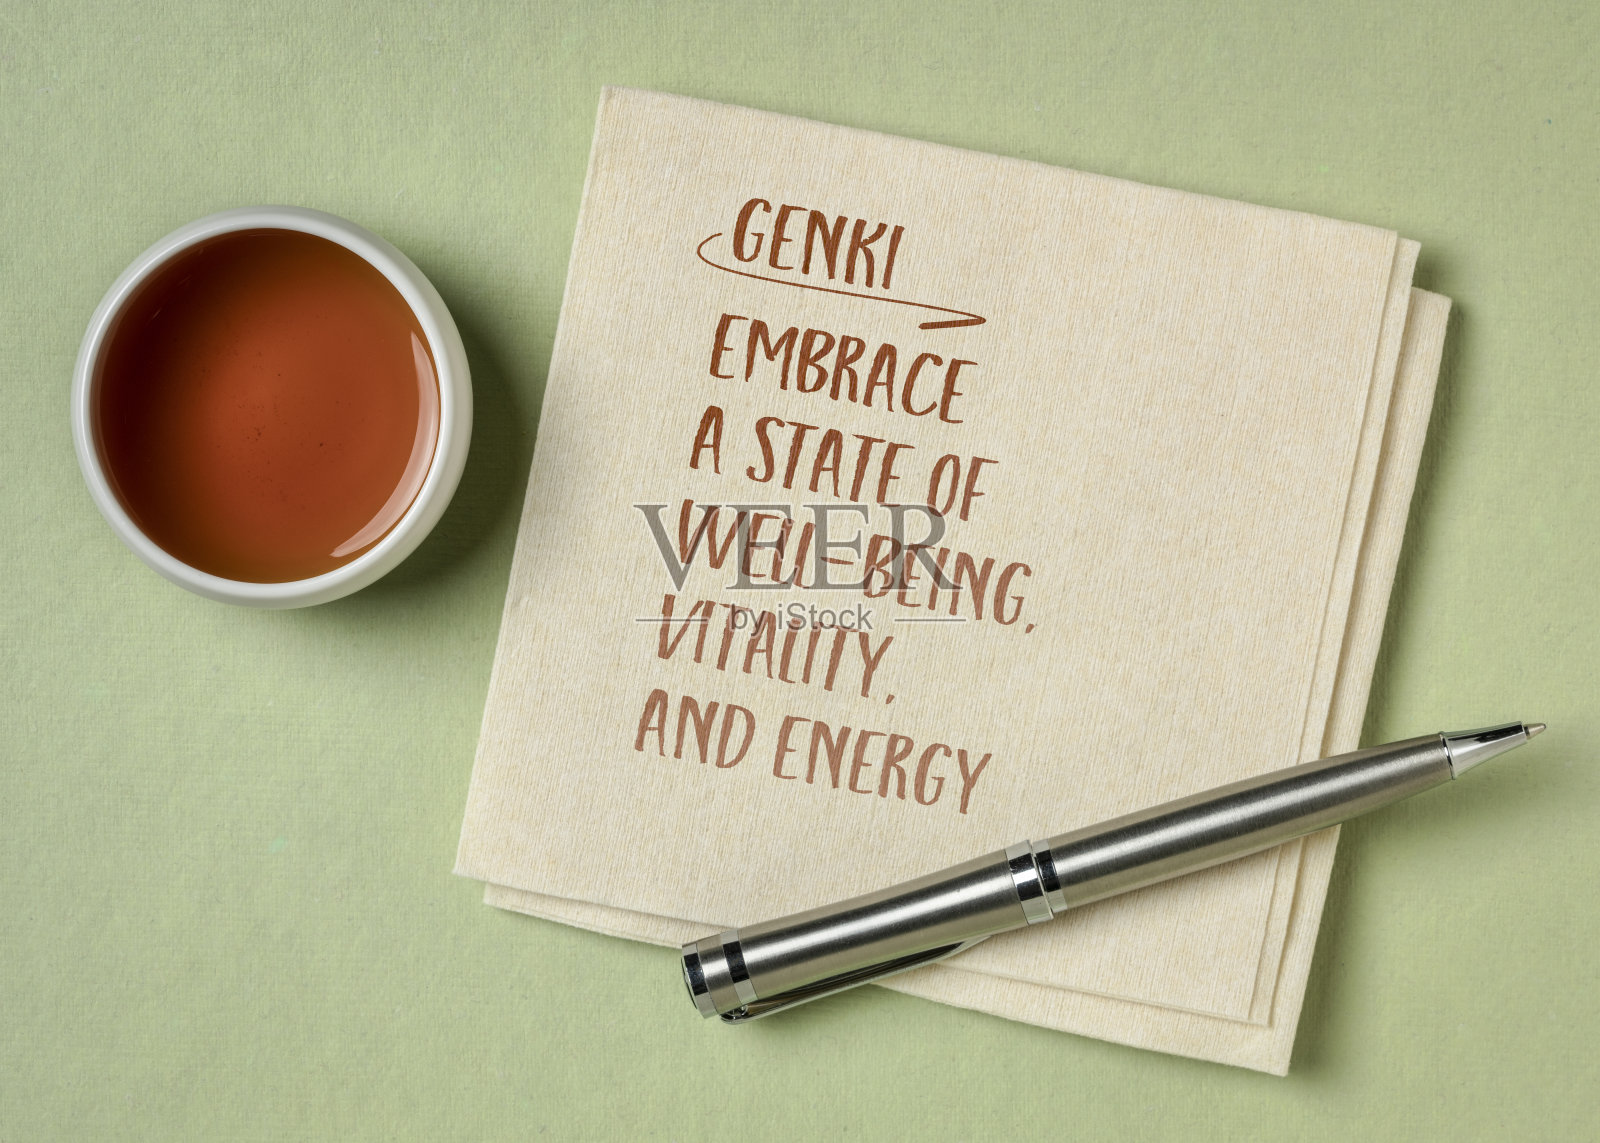 GENKI
EMBRACE
A STATE OF
WELL-BEING,
VITALITY,
AND ENERGY
VEER
by iStock